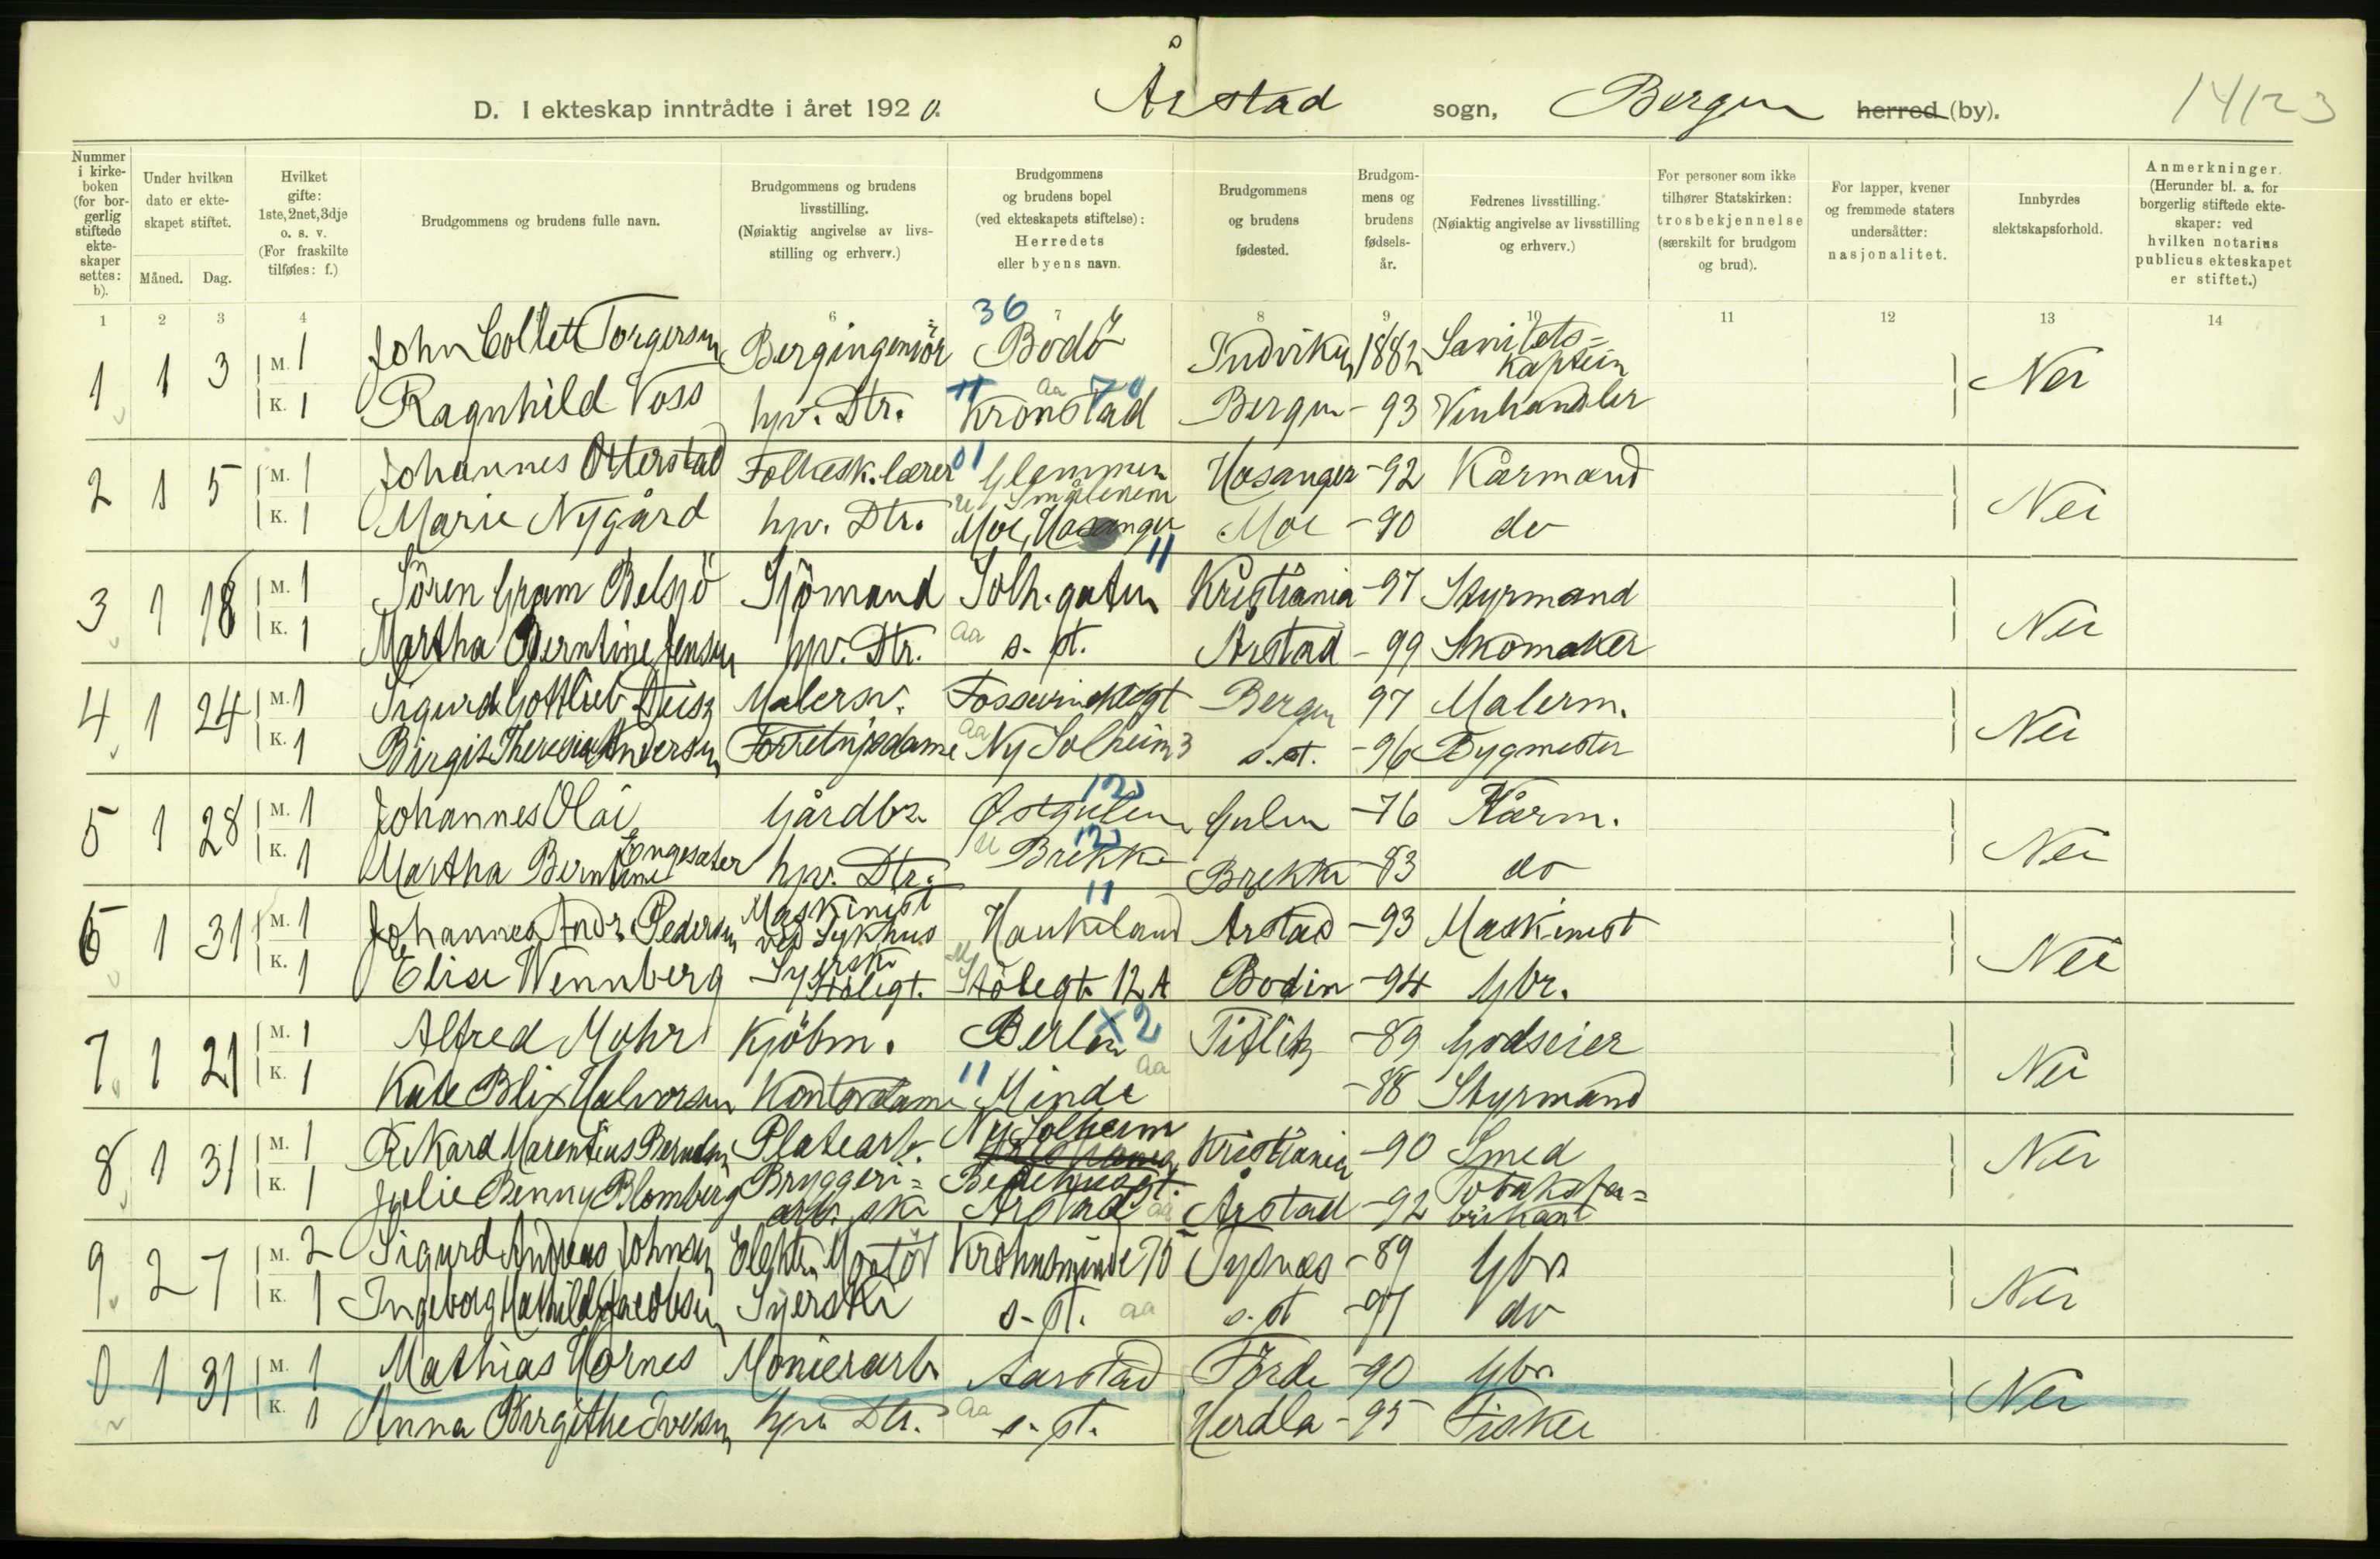 D. I ekteskap inntrådte i året 1920. Årstad sogn, Bergen herred (by). 14123
Nummer i kirkeboken (for borgerlig stiftede ekteskaper settes: b).
Under hvilken dato er ekteskapet stiftet.
Måned. Dag.
Hvilket gifte: 1ste, 2net, 3dje o. s. v. (For fraskilte tilføies: f.)
Brudgommens og brudens fulle navn.
Brudgommens og brudens livsstilling. (Nøiaktig angivelse av livsstilling og erhverv.)
Brudgommens og brudens bopel (ved ekteskapets stiftelse): Herredets eller byens navn.
Brudgommens og brudens fødested.
Brudgommens og brudens fødselsår.
Fedrenes livsstilling. (Nøiaktig angivelse av livsstilling og erhverv.)
For personer som ikke tilhører Statskirken: trosbekjennelse (særskilt for brudgom og brud).
For lapper, kvener og fremmede staters undersåtter: nasjonalitet.
Innbyrdes slektskapsforhold.
Anmerkninger. (Herunder bl. a. for borgerlig stiftede ekteskaper: ved hvilken notarius publicus ekteskapet er stiftet.)
1 2 3 4 5 6 7 8 9 10 11 12 13 14
1 1 3 M. 1 John Collett Torgersen Bergingeniör 36 Bodö Indviken 1882 Sanitets=kaptein Nei
K. 1 Ragnhild Voss hpv. Dtr. 11 aa 70 Kronstad Bergen -93 Vinhandler
2 1 5 M. 1 Johannes Otterstad Folkesk.lærer 01 Glemmen Smålenene Hosanger -92 Kårmand Nei
K. 1 Marie Nygård hpv. Dtr. u Moe, Hosanger Moe -90 do
3 1 18 M. 1 Sören Gram Belsjö Sjömand Solh.gaten 11 Kristiania -97 Styrmand Nei
K. 1 Martha Berntine Jensen hpv. Dtr. aa s. st. Årstad -99 Skomaker
4 1 24 M. 1 Sigurd Gottlieb Malersv. Bergen 97 Malerm. Nei
K. 1 Birgit Theresia Andersen Forretnjsdame aa Ny Solheim 3 s. st. -96 Bygmester
5 1 28 M. 1 Johannes Olai Gårdbr. 12 Østgulen Gulen -76 Kårm. Nei
K. 1 Martha Berntine Engesæter hpv. Dtr. u 12 Brekke Brekke -83 do
6 1 31 M. 1 Johannes Andr. Pedersen Maskinist ved Sykhus 11 Haukeland Årstad -93 Maskinist Nei
K. 1 Elise Wennberg Syerske Stölegt. Stölegt. 12 A Bodin -94 Gbr.
7 1 21 M. 1 Alfred Mohr Kjöbm. Berlin x2 -89 Godseier Nei
K. 1 Kate Blix Halvorsen Kontordame 11 Minde aa -88 Styrmand
8 1 31 M. 1 Rikard Marentius Berntsen Platearb. Ny Solheim Kristiania -90 Smed Nei
K. 1 Julie Benny Blomberg Bryggeri=arb.ske Bedehusgt. Årstad aa Årstad -92 Tobaksfa=brikant
9 2 7 M. 2 Sigurd Andreas Johnsen Elektr. Montör Krohnsminde 70 Tysnes -89 Gbr. Nei
K. 1 Ingeborg Mathilde Jacobsen Syerske s. st. aa s. st -97 do
0 1 31 M. 1 Mathias Hornes Monierarb. Aarstad Förde -90 Gbr. Nei
K. 1 Anna Birgithe Iversen hpv. Dtr. aa s. st. Herdla -95 Fisker